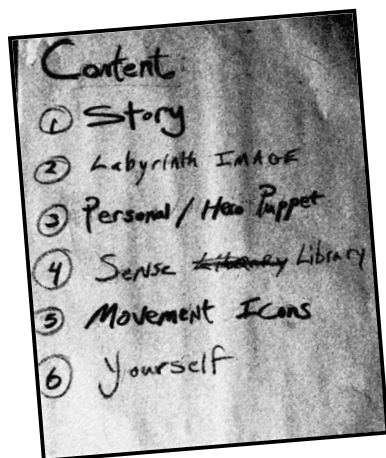 Content
① Story
② Labyrinth IMAGE
③ Personal / Hero Puppet
④ Sense Library Library
⑤ Movement Icons
⑥ Yourself